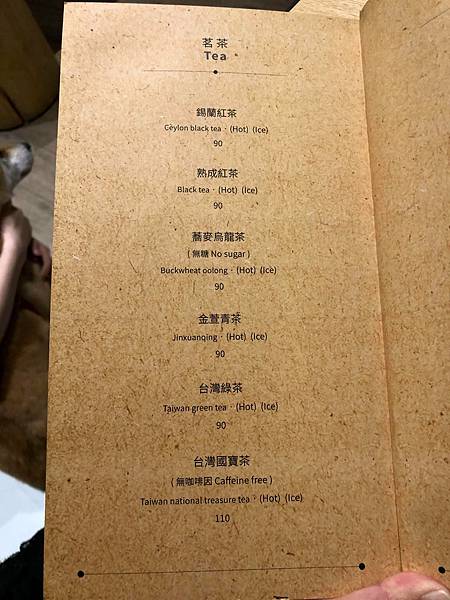 茗茶
Tea
錫蘭紅茶
Ceylon black tea · (Hot) (Ice)
90
熟成紅茶
Black tea · (Hot) (Ice)
90
蕎麥烏龍茶
( 無糖 No sugar )
Buckwheat oolong · (Hot) (Ice)
90
金萱青茶
Jinxuanqing · (Hot) (Ice)
90
台灣綠茶
Taiwan green tea · (Hot) (Ice)
90
台灣國寶茶
( 無咖啡因 Caffeine free )
Taiwan national treasure tea · (Hot) (Ice)
110